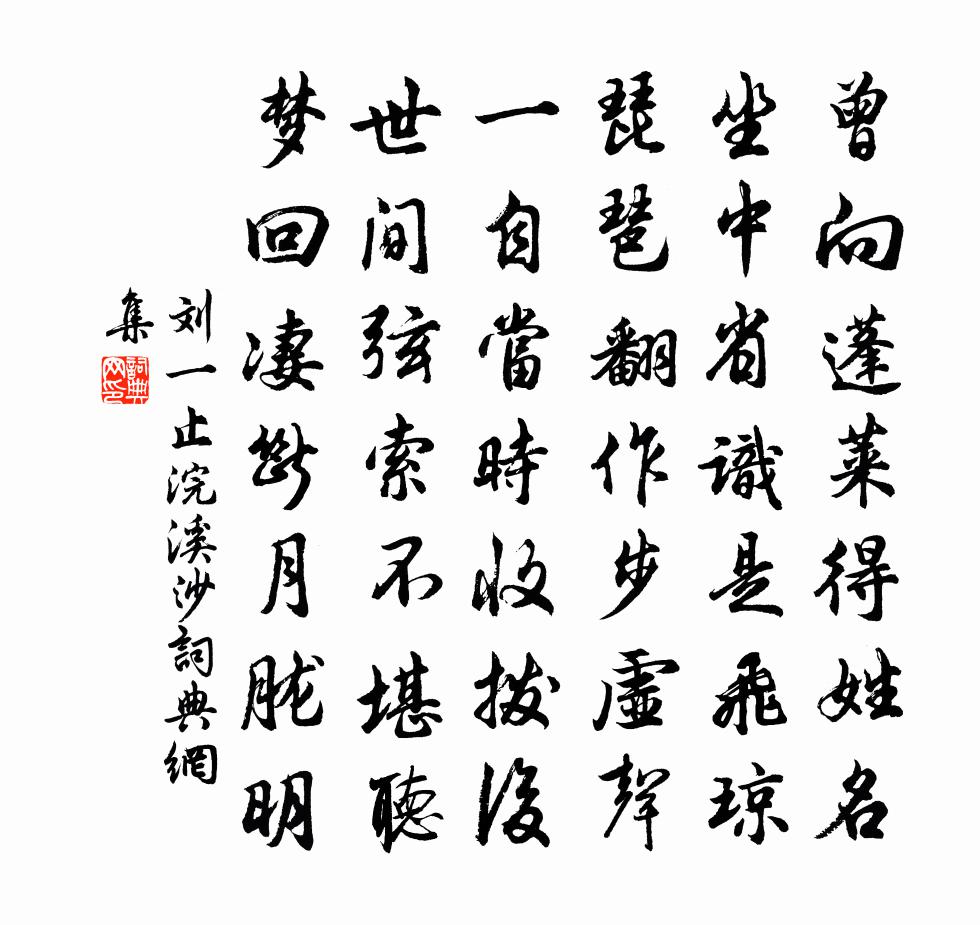 曾向蓬莱得姓名
坐中省識是飛琼
琵琶翻作步虛聲
一自當時收拨後
世间弦索不堪聽
梦回凄断月胧明
刘一止浣溪沙詞典網
集
詞典
网印